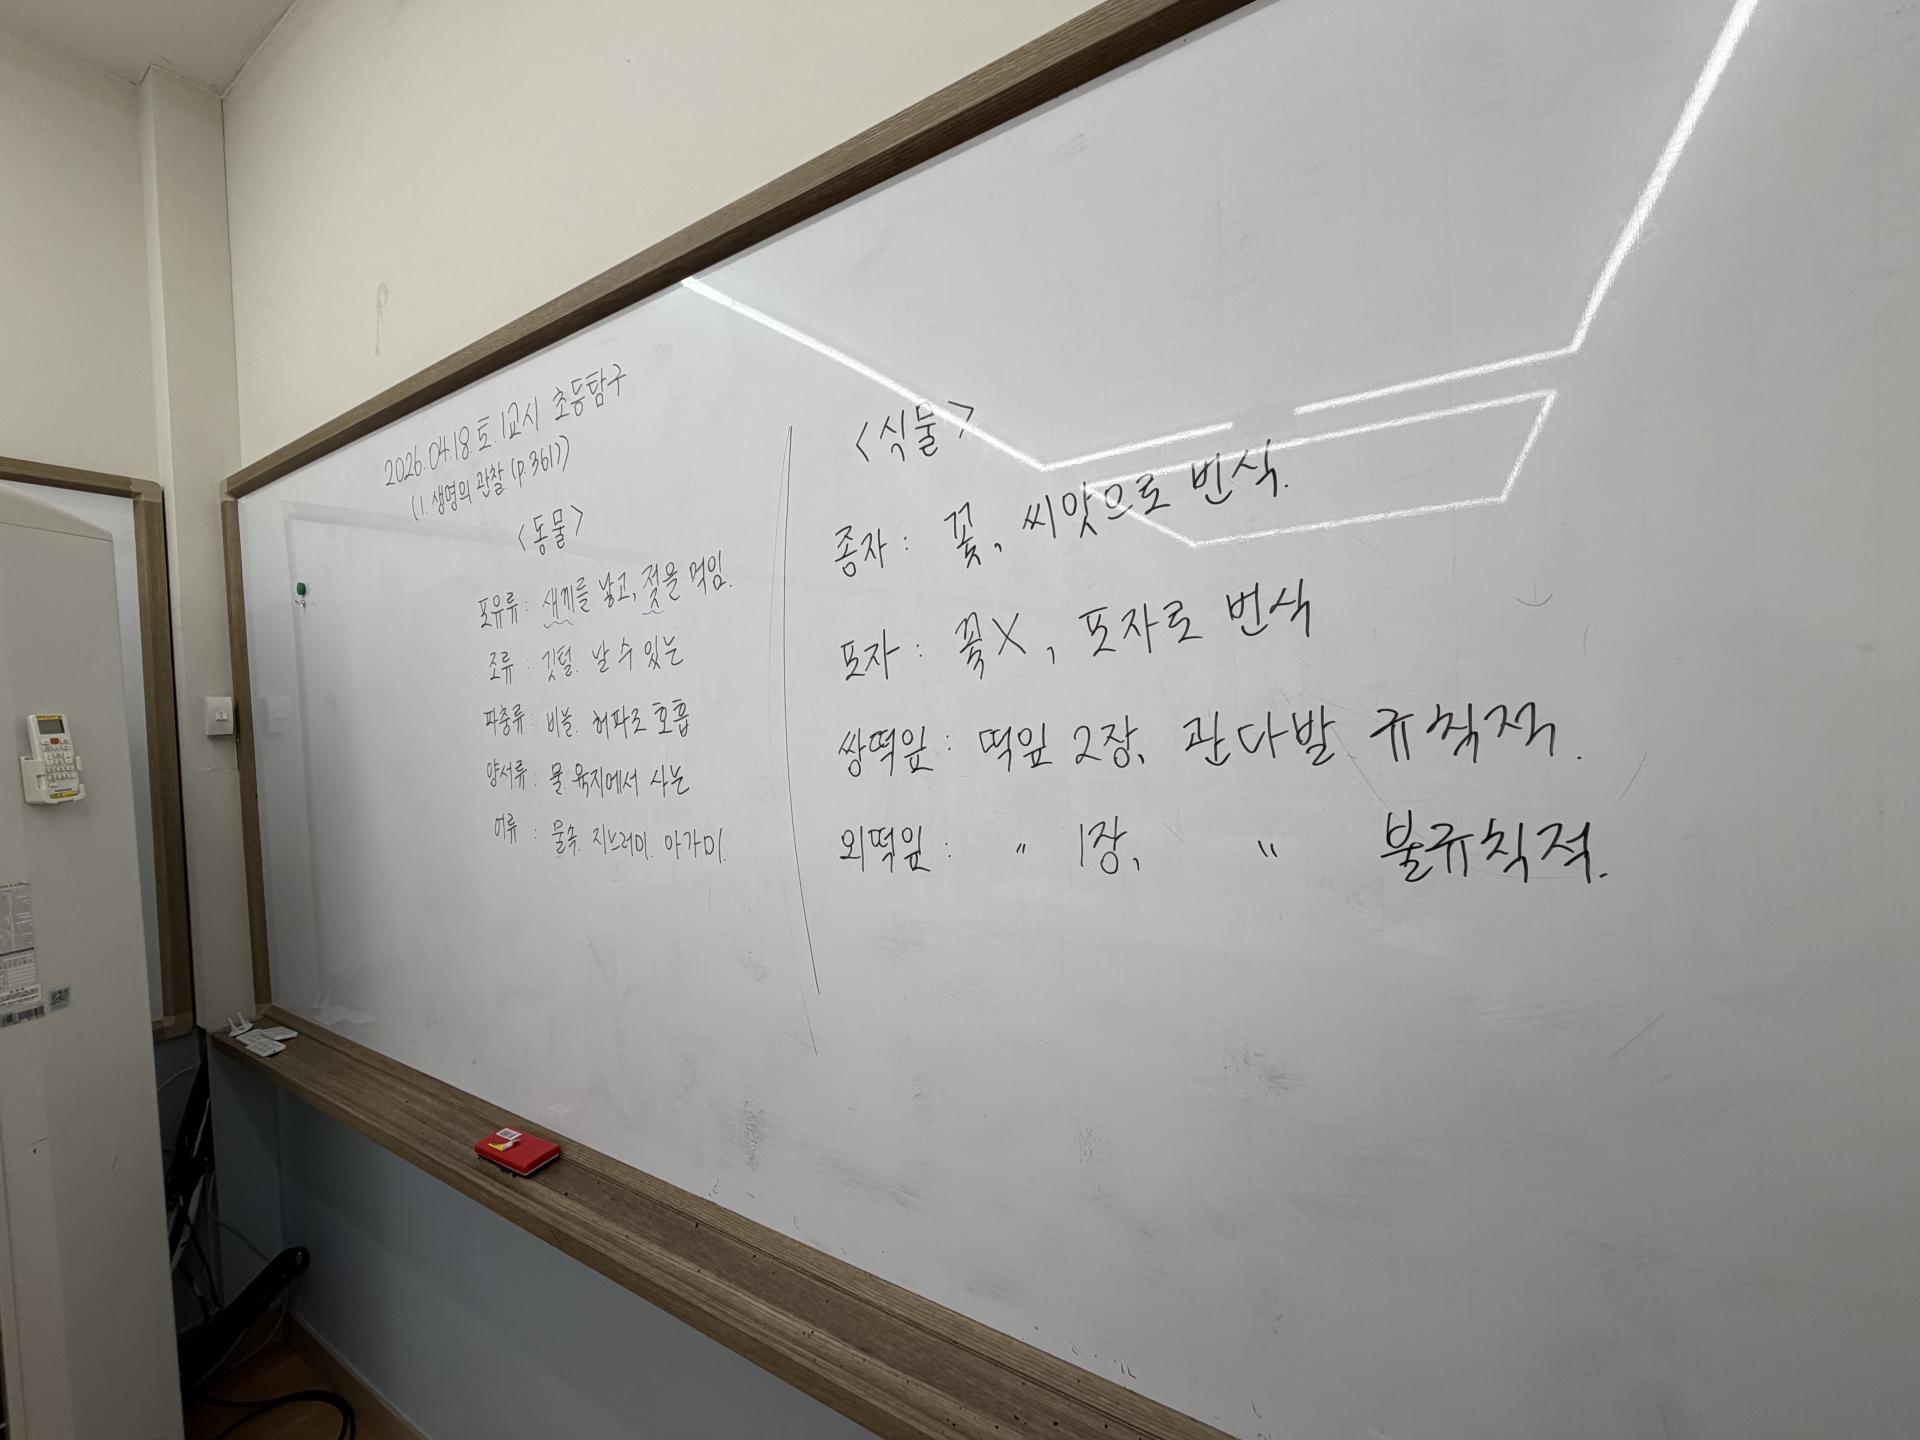 2026.04.18.토.1교시 초등탐구
(1. 생명의 관찰 (p.361))
<동물>
포유류 : 새끼를 낳고, 젖을 먹임.
조류 : 깃털. 날 수 있는
파충류 : 비늘. 허파로 호흡
양서류 : 물.육지에서 사는
어류 : 물속. 지느러미. 아가미.
<식물>
종자 : 꽃, 씨앗으로 번식.
포자 : 꽃X, 포자로 번식
쌍떡잎 : 떡잎 2장, 관다발 규칙적.
외떡잎 : " 1장, " 불규칙적.